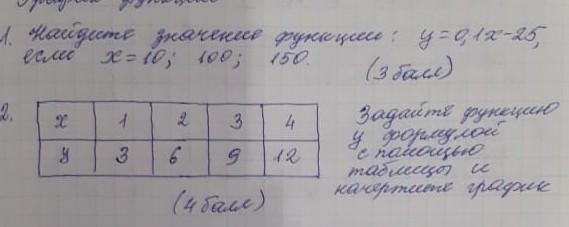 График функции
1. Найдите значение функции: y=0,1x-25,
если x=10; 100; 150.
(3 балл)
2.
x 1 2 3 4
y 3 6 9 12
(4 балл)
Задайте функцию
y формулой
с помощью
таблицы и
начертите график